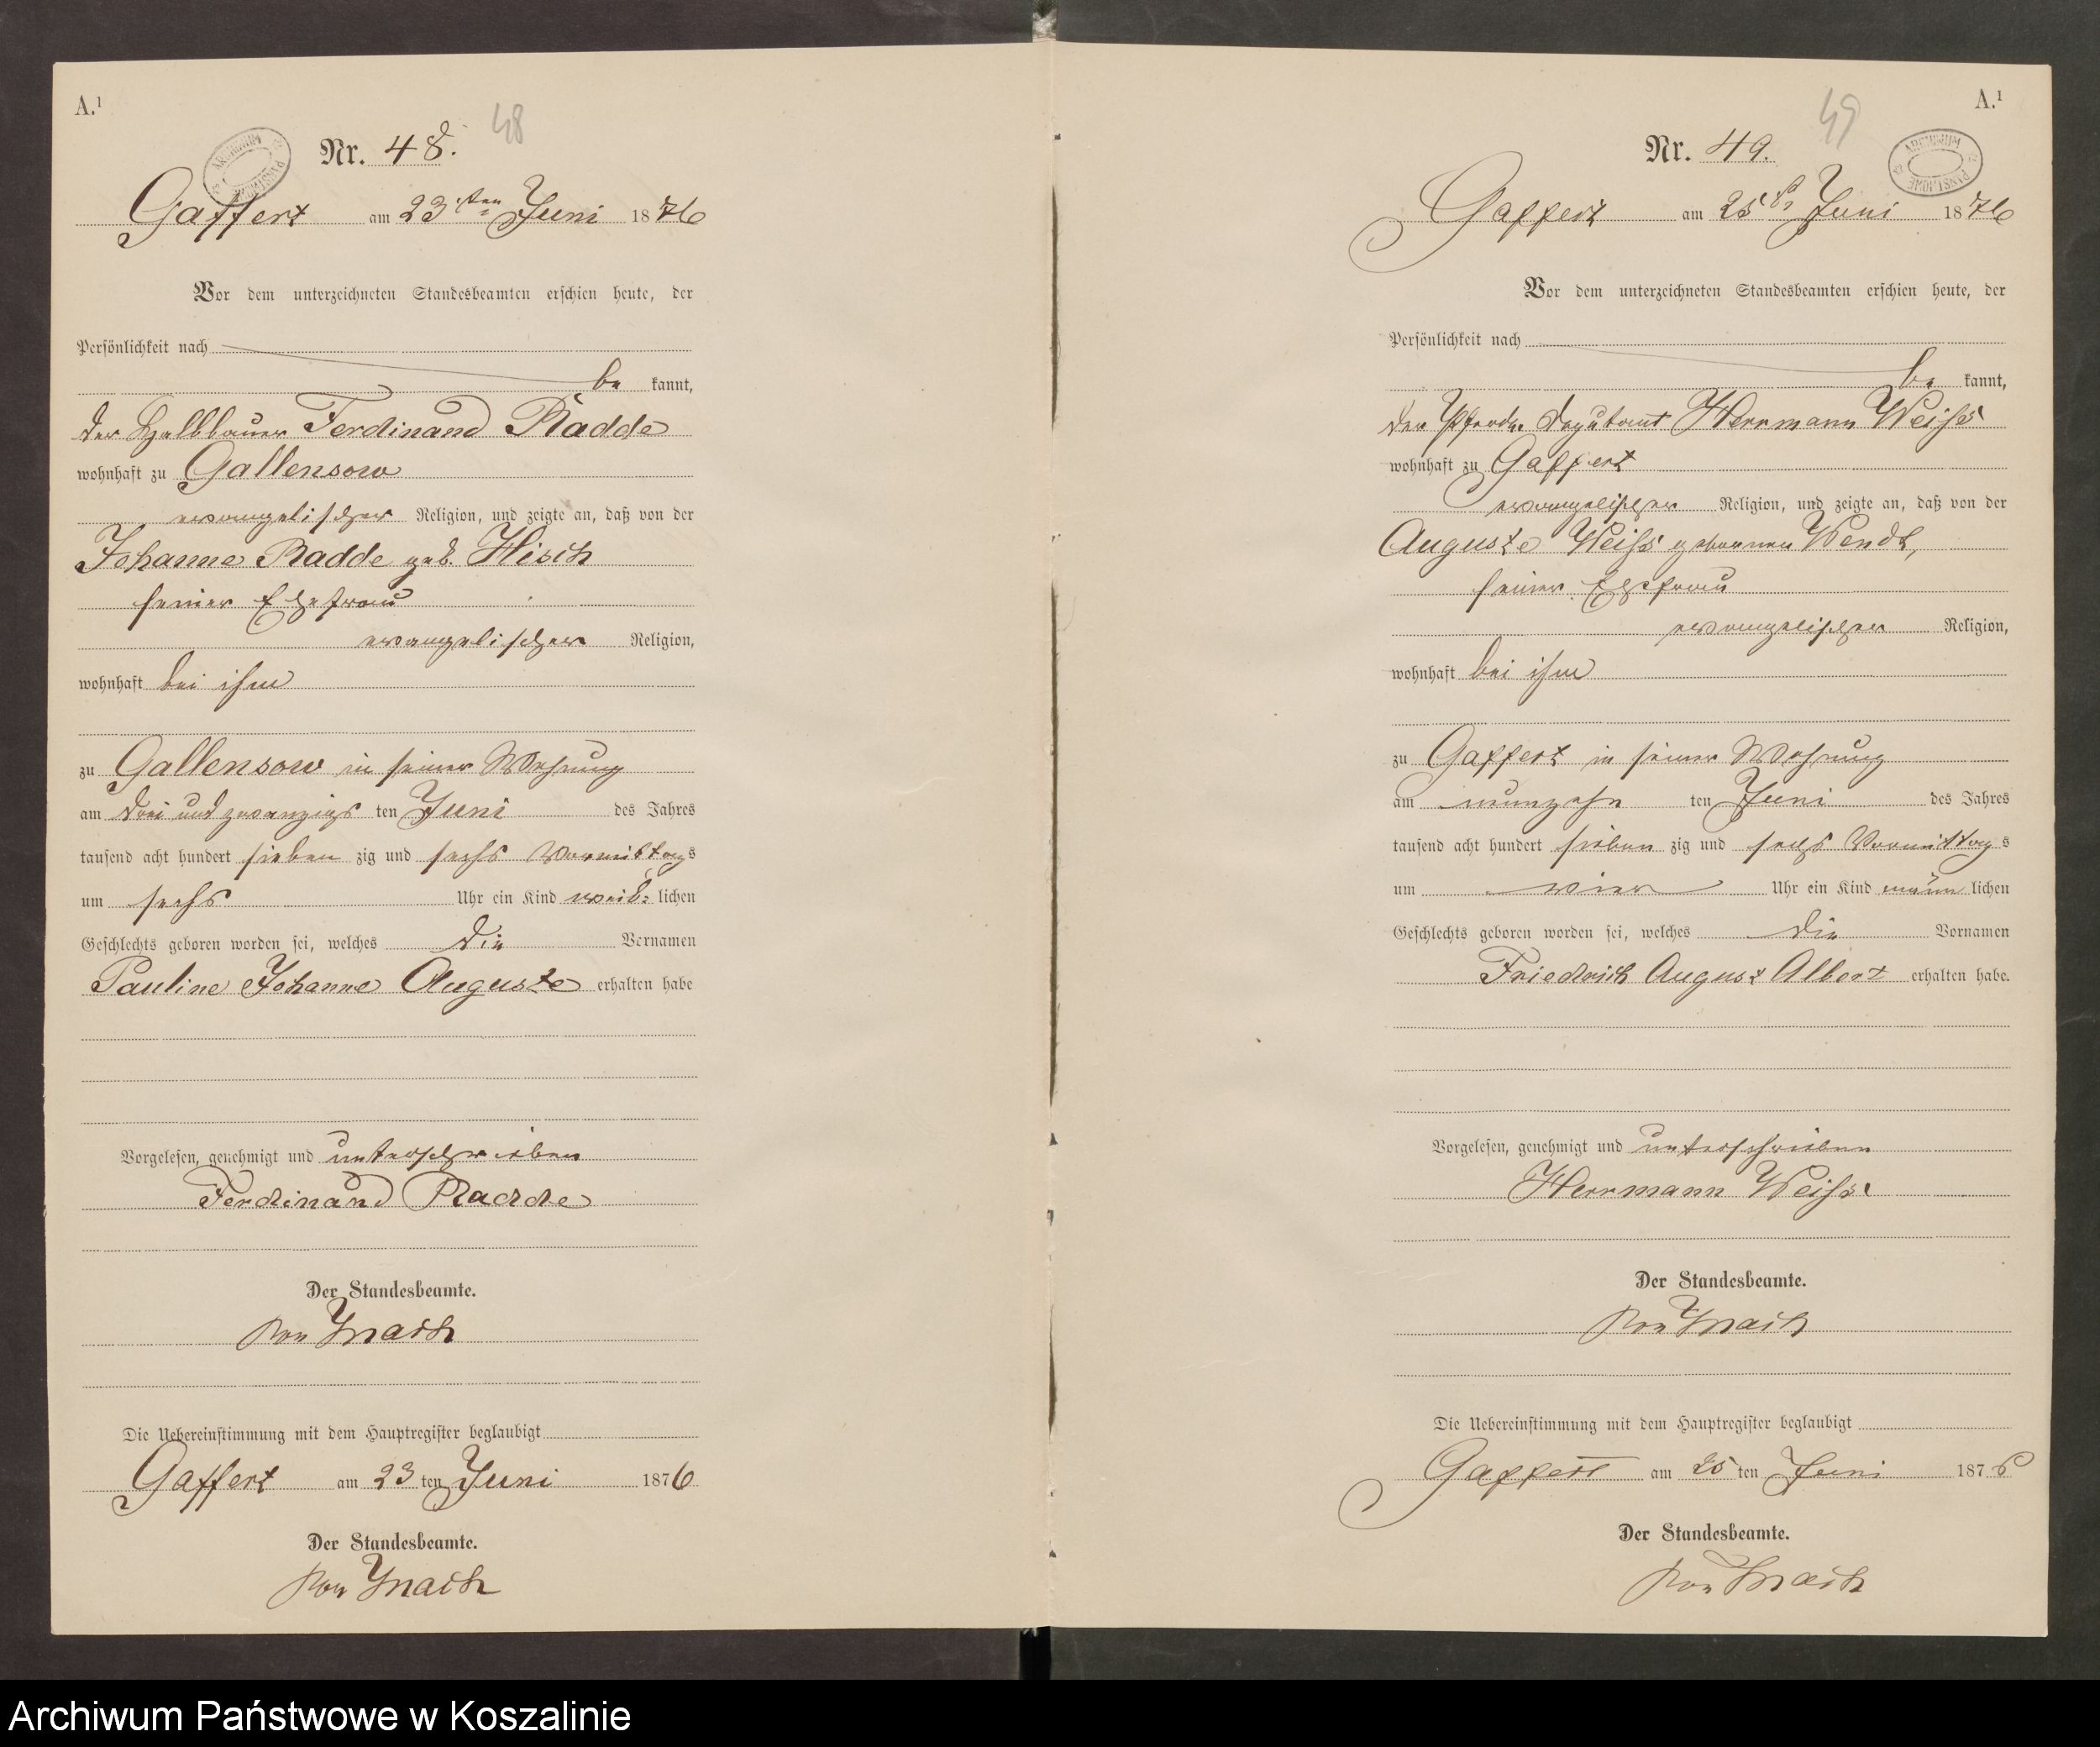 A.¹
48
Nr. 48.
Gaffert am 23ten Juni 1876
Vor dem unterzeichneten Standesbeamten erschien heute, der
Persönlichkeit nach
be kannt,
der Halbbauer Ferdinand Radde
wohnhaft zu Gallensow
evangelischer Religion, und zeigte an, daß von der
Johanne Radde geb. Hisch
seiner Ehefrau
evangelischer Religion,
wohnhaft bei ihm
zu Gallensow in seiner Wohnung
am drei und zwanzigs ten Juni des Jahres
tausend acht hundert sieben zig und sechs Vormittags
um sechs Uhr ein Kind weib= lichen
Geschlechts geboren worden sei, welches die Vornamen
Pauline Johanne Auguste erhalten habe
Vorgelesen, genehmigt und unterschrieben
Ferdinand Radde
Der Standesbeamte.
von
Die Uebereinstimmung mit dem Hauptregister beglaubigt
Gaffert am 23 ten Juni 1876
Der Standesbeamte.
von
A.¹
49
ARCHIWUM PAŃSTWOWE
Nr. 49.
Gaffert am 25 Juni 1876
Vor dem unterzeichneten Standesbeamten erschien heute, der
Persönlichkeit nach
be kannt,
der Pferde Deputant Herrmann Weiß
wohnhaft zu Gaffert
evangelischer Religion, und zeigte an, daß von der
Auguste Weiß geborenen Wendt,
seiner Ehefrau
evangelischer Religion,
wohnhaft bei ihm
zu Gaffert in seiner Wohnung
am neunzehn ten Juni des Jahres
tausend acht hundert sieben zig und sechs Vormittags
um vier Uhr ein Kind männ lichen
Geschlechts geboren worden sei, welches die Vornamen
Friedrich August Albert erhalten habe.
Vorgelesen, genehmigt und unterschrieben
Herrmann Weiß
Der Standesbeamte.
von
Die Uebereinstimmung mit dem Hauptregister beglaubigt
Gaffert am 25 ten Juni 1876
Der Standesbeamte.
von
Archiwum Państwowe w Koszalinie